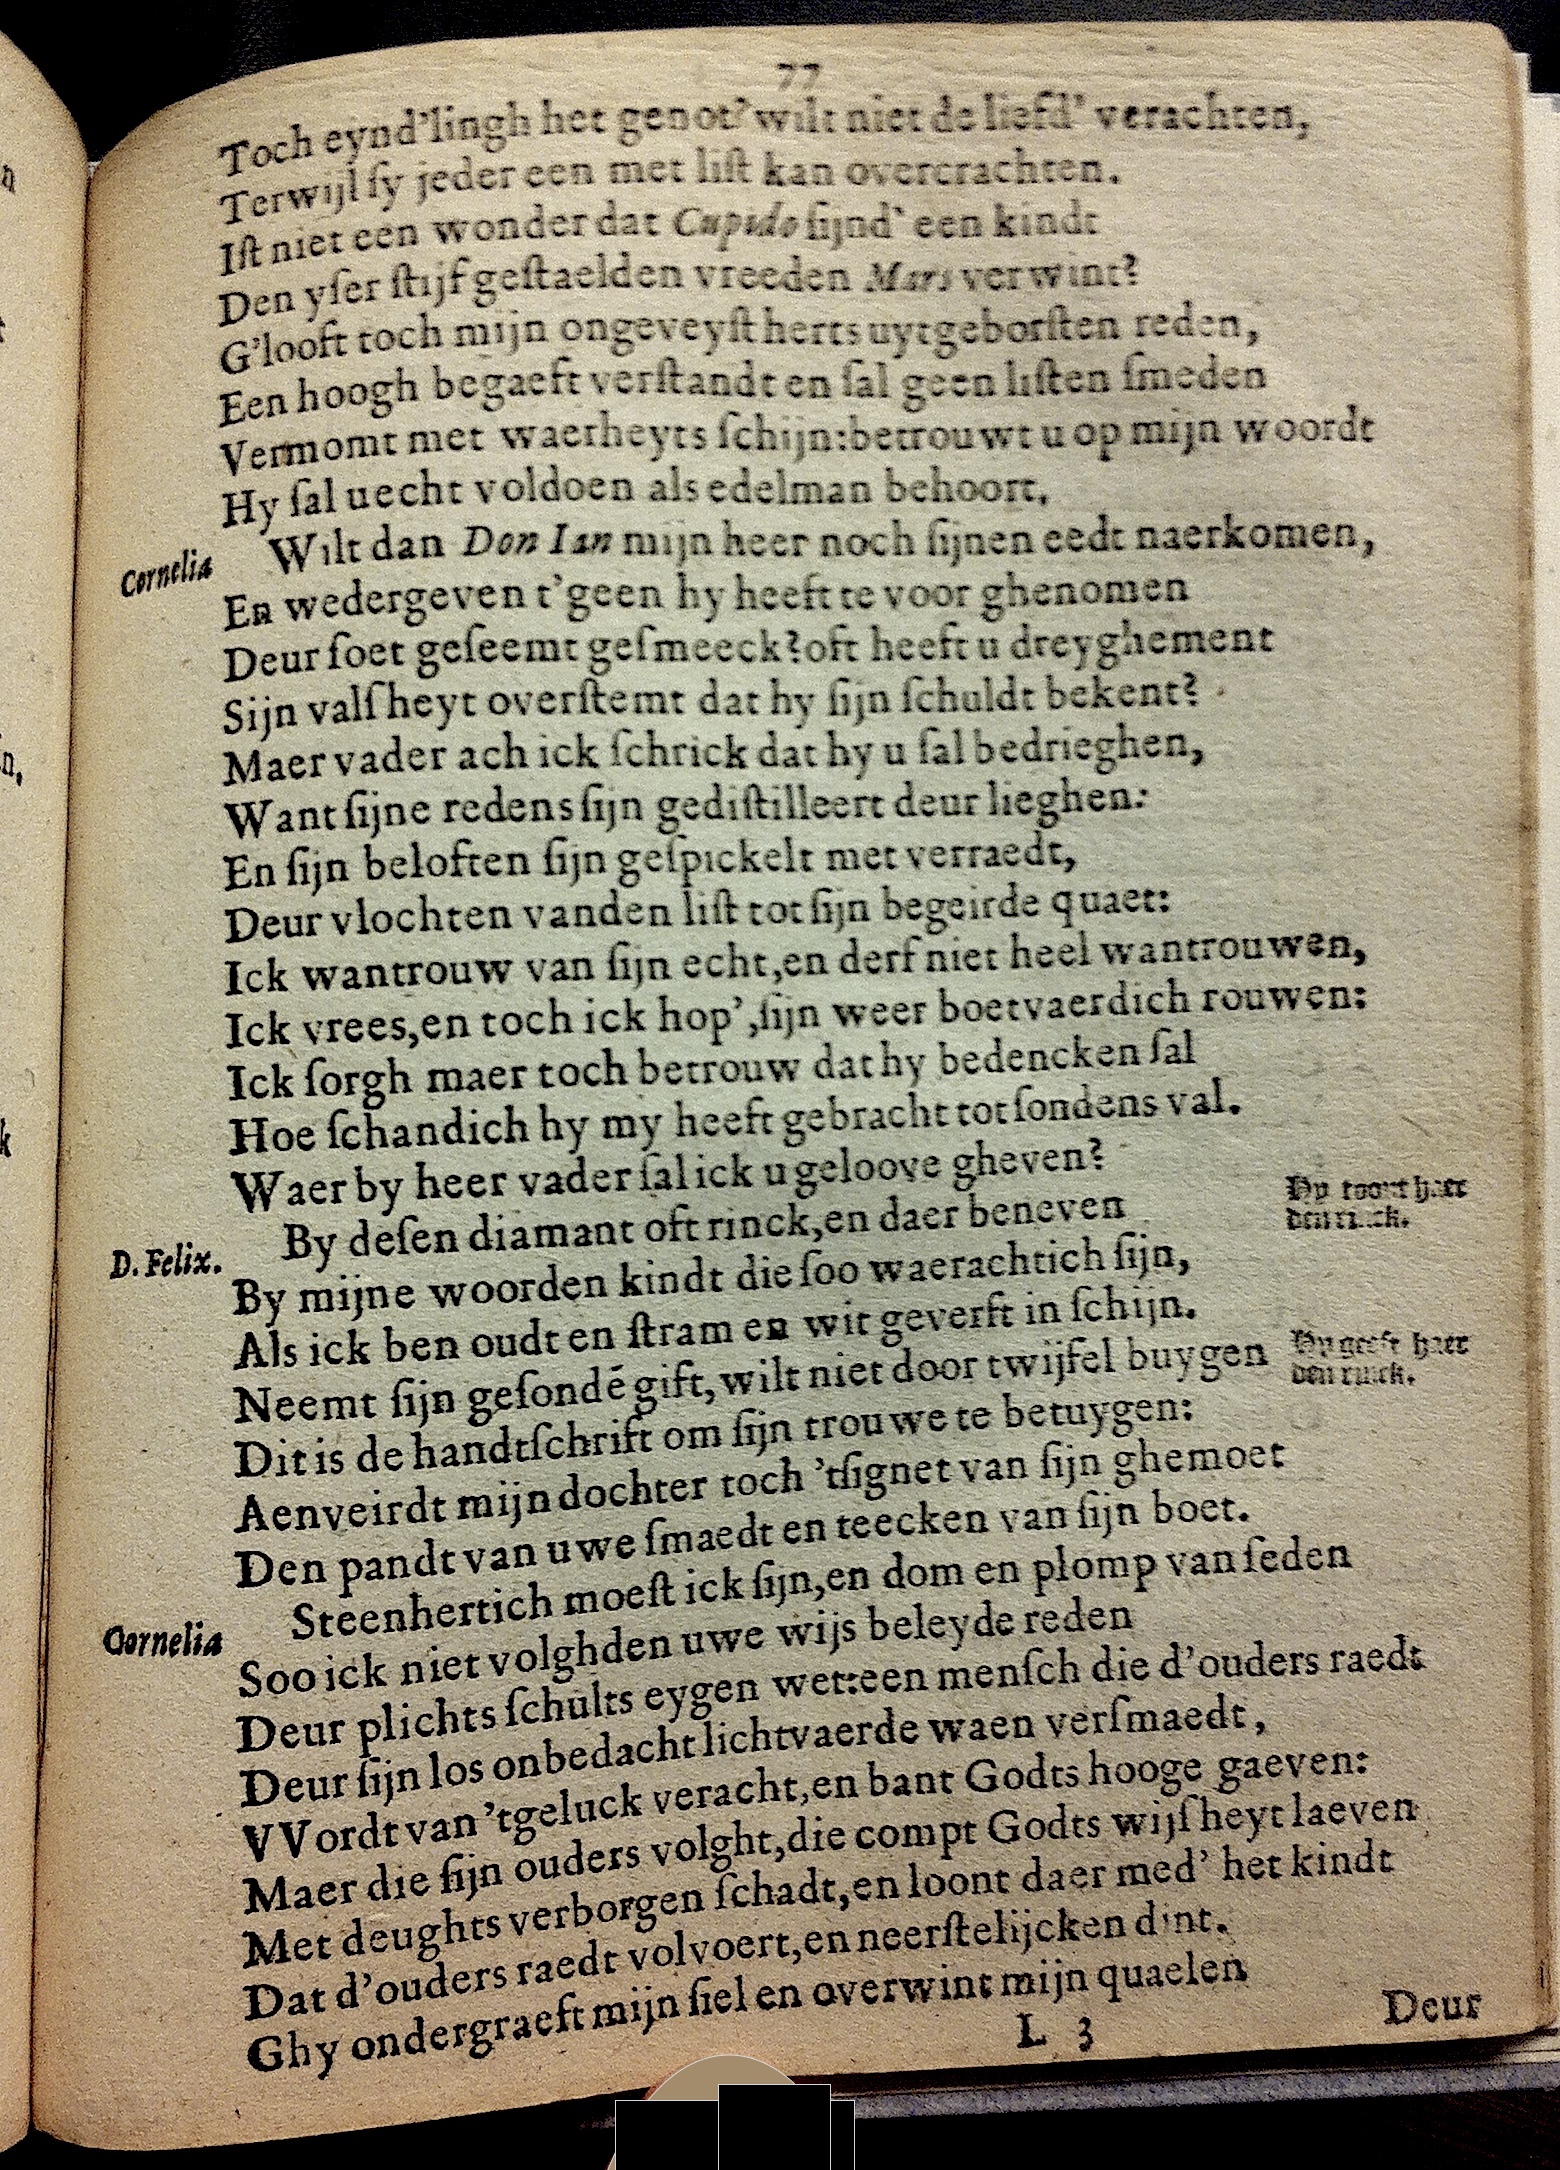 77
Toch eynd'lingh het genot? wilt niet de liefd' verachten,
Terwijl ſy jeder een met liſt kan overcrachten.
Iſt niet een wonder dat Cupido ſijnd' een kindt
Den yſer ſtijf geſtaelden vreeden Mars verwint?
G'looft toch mijn ongeveyſt herts uytgeborſten reden,
Een hoogh begaeft verſtandt en ſal geen liſten ſmeden
Vermomt met waerheyts ſchijn: betrouwt u op mijn woordt
Hy ſal uecht voldoen als edelman behoort.
Cornelia Wilt dan Don Ian mijn heer noch ſijnen eedt naerkomen,
En wedergeven t'geen hy heeft te voor ghenomen
Deur ſoet geſeemt geſmeeck? oft heeft u dreyghement
Sijn valſheyt overſtemt dat hy ſijn ſchuldt bekent?
Maer vader ach ick ſchrick dat hy u ſal bedrieghen,
Want ſijne redens ſijn gediſtilleert deur lieghen:
En ſijn beloften ſijn geſpickelt met verraedt,
Deur vlochten vanden liſt tot ſijn begeirde quaet:
Ick wantrouw van ſijn echt, en derf niet heel wantrouwen,
Ick vrees, en toch ick hop', ſijn weer boetvaerdich rouwen:
Ick ſorgh maer toch betrouw dat hy bedencken ſal
Hoe ſchandich hy my heeft gebracht tot ſondens val.
Waer by heer vader ſal ick u geloove gheven?
D. Felix. By deſen diamant oft rinck, en daer beneven
Hy toont haer
den rinck.
By mijne woorden kindt die ſoo waerachtich ſijn,
Als ick ben oudt en ſtram en wit geverft in ſchijn.
Neemt ſijn geſondé gift, wilt niet door twijfel buygen
Hy geeft haer
den rinck.
Dit is de handtſchrift om ſijn trouwe te betuygen:
Aenveirdt mijn dochter toch 'tſignet van ſijn ghemoet
Den pandt van uwe ſmaedt en teecken van ſijn boet.
Cornelia Steenhertich moeſt ick ſijn, en dom en plomp van ſeden
Soo ick niet volghden uwe wijs beleyde reden
Deur plichts ſchults eygen wet: een menſch die d'ouders raedt
Deur ſijn los onbedacht lichtvaerde waen verſmaedt,
VVordt van 'tgeluck veracht, en bant Godts hooge gaeven:
Maer die ſijn ouders volght, die compt Godts wijſheyt laeven
Met deughts verborgen ſchadt, en loont daer med' het kindt
Dat d'ouders raedt volvoert, en neerſtelijcken dint.
Ghy ondergraeft mijn ſiel en overwint mijn quaelen
L 3
Deur